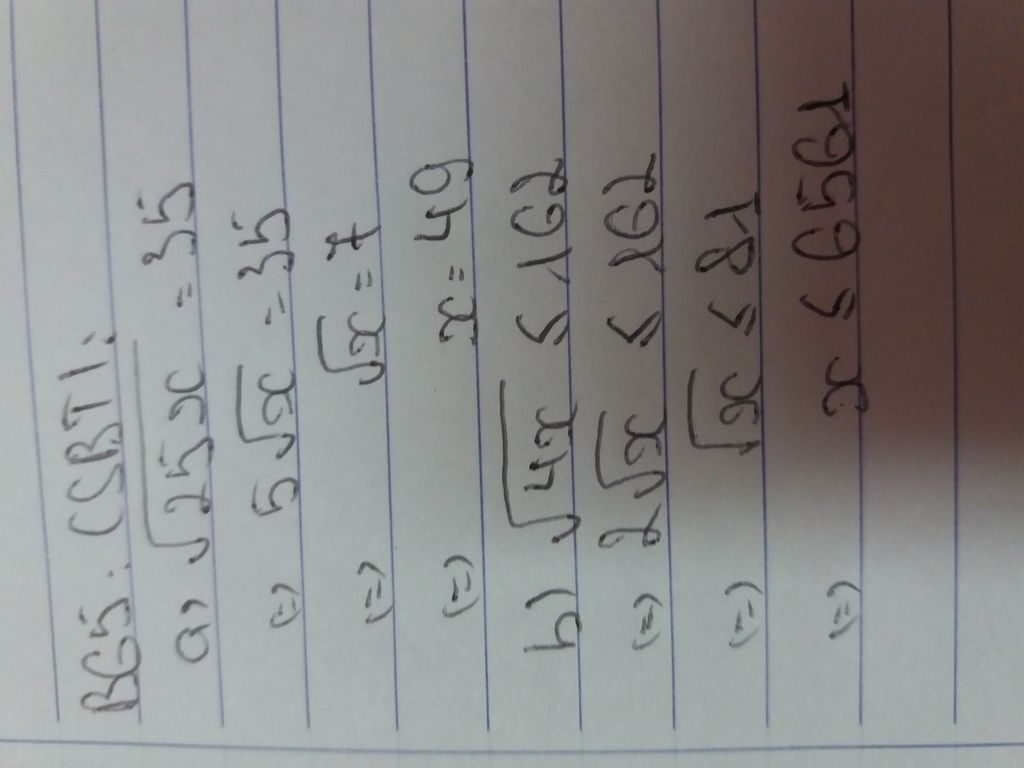 B65: (SBT):
a, √25x = 35
(=) 5√x = 35
(=) √x = 7
(=) x = 49
b) √4x ≤ 162
(=) 2√x ≤ 162
(=) √x ≤ 81
(=) x ≤ 6561